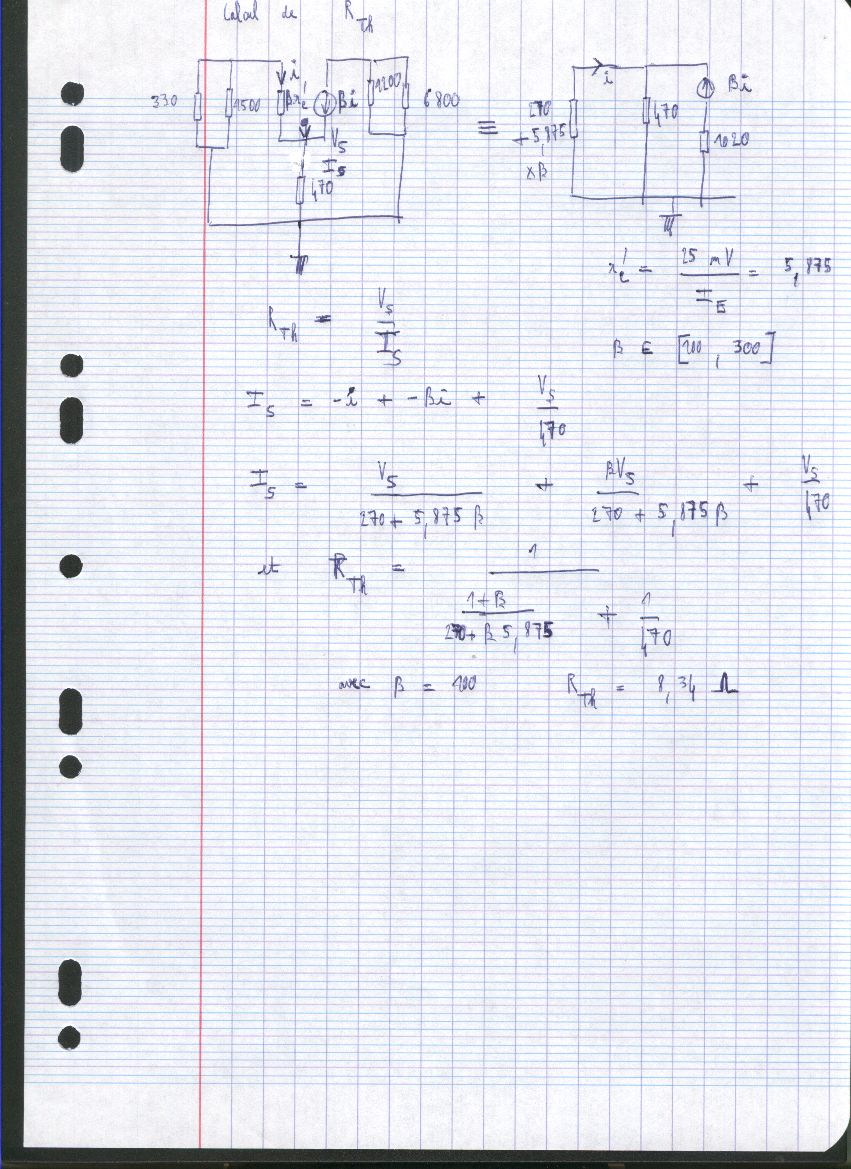 Calcul de R_Th
i i
330 1500 βr'e βi 1200 6800 ≡ 270 470 βi
+ 5,875 1020
V_s × β
I_s
470
r'e = 25 mV / I_E = 5,875
R_Th = V_s / I_s
β ∈ [100, 300]
I_s = -i + -βi + V_s / 470
I_s = V_s / (270 + 5,875 β) + βV_s / (270 + 5,875 β) + V_s / 470
et R_Th = 1 / ((1+β) / (270 + β 5,875) + 1 / 470)
avec β = 100 R_Th = 8,34 Ω